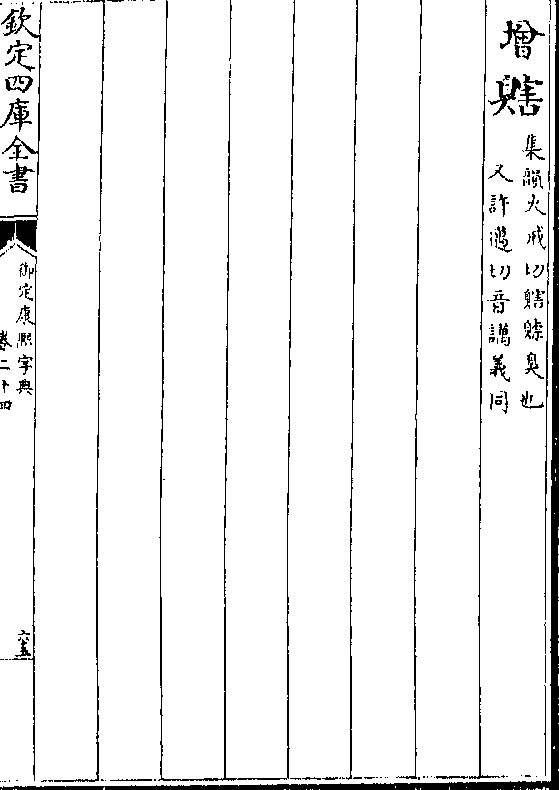 增
集韻火戒切臭也
又許邁切音義同
欽定四庫全書
御定康熙字典
卷二十四
六五